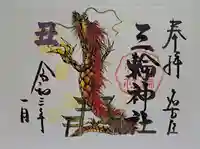 奉拝
名古屋
三輪神社
丑
令和三年
一月